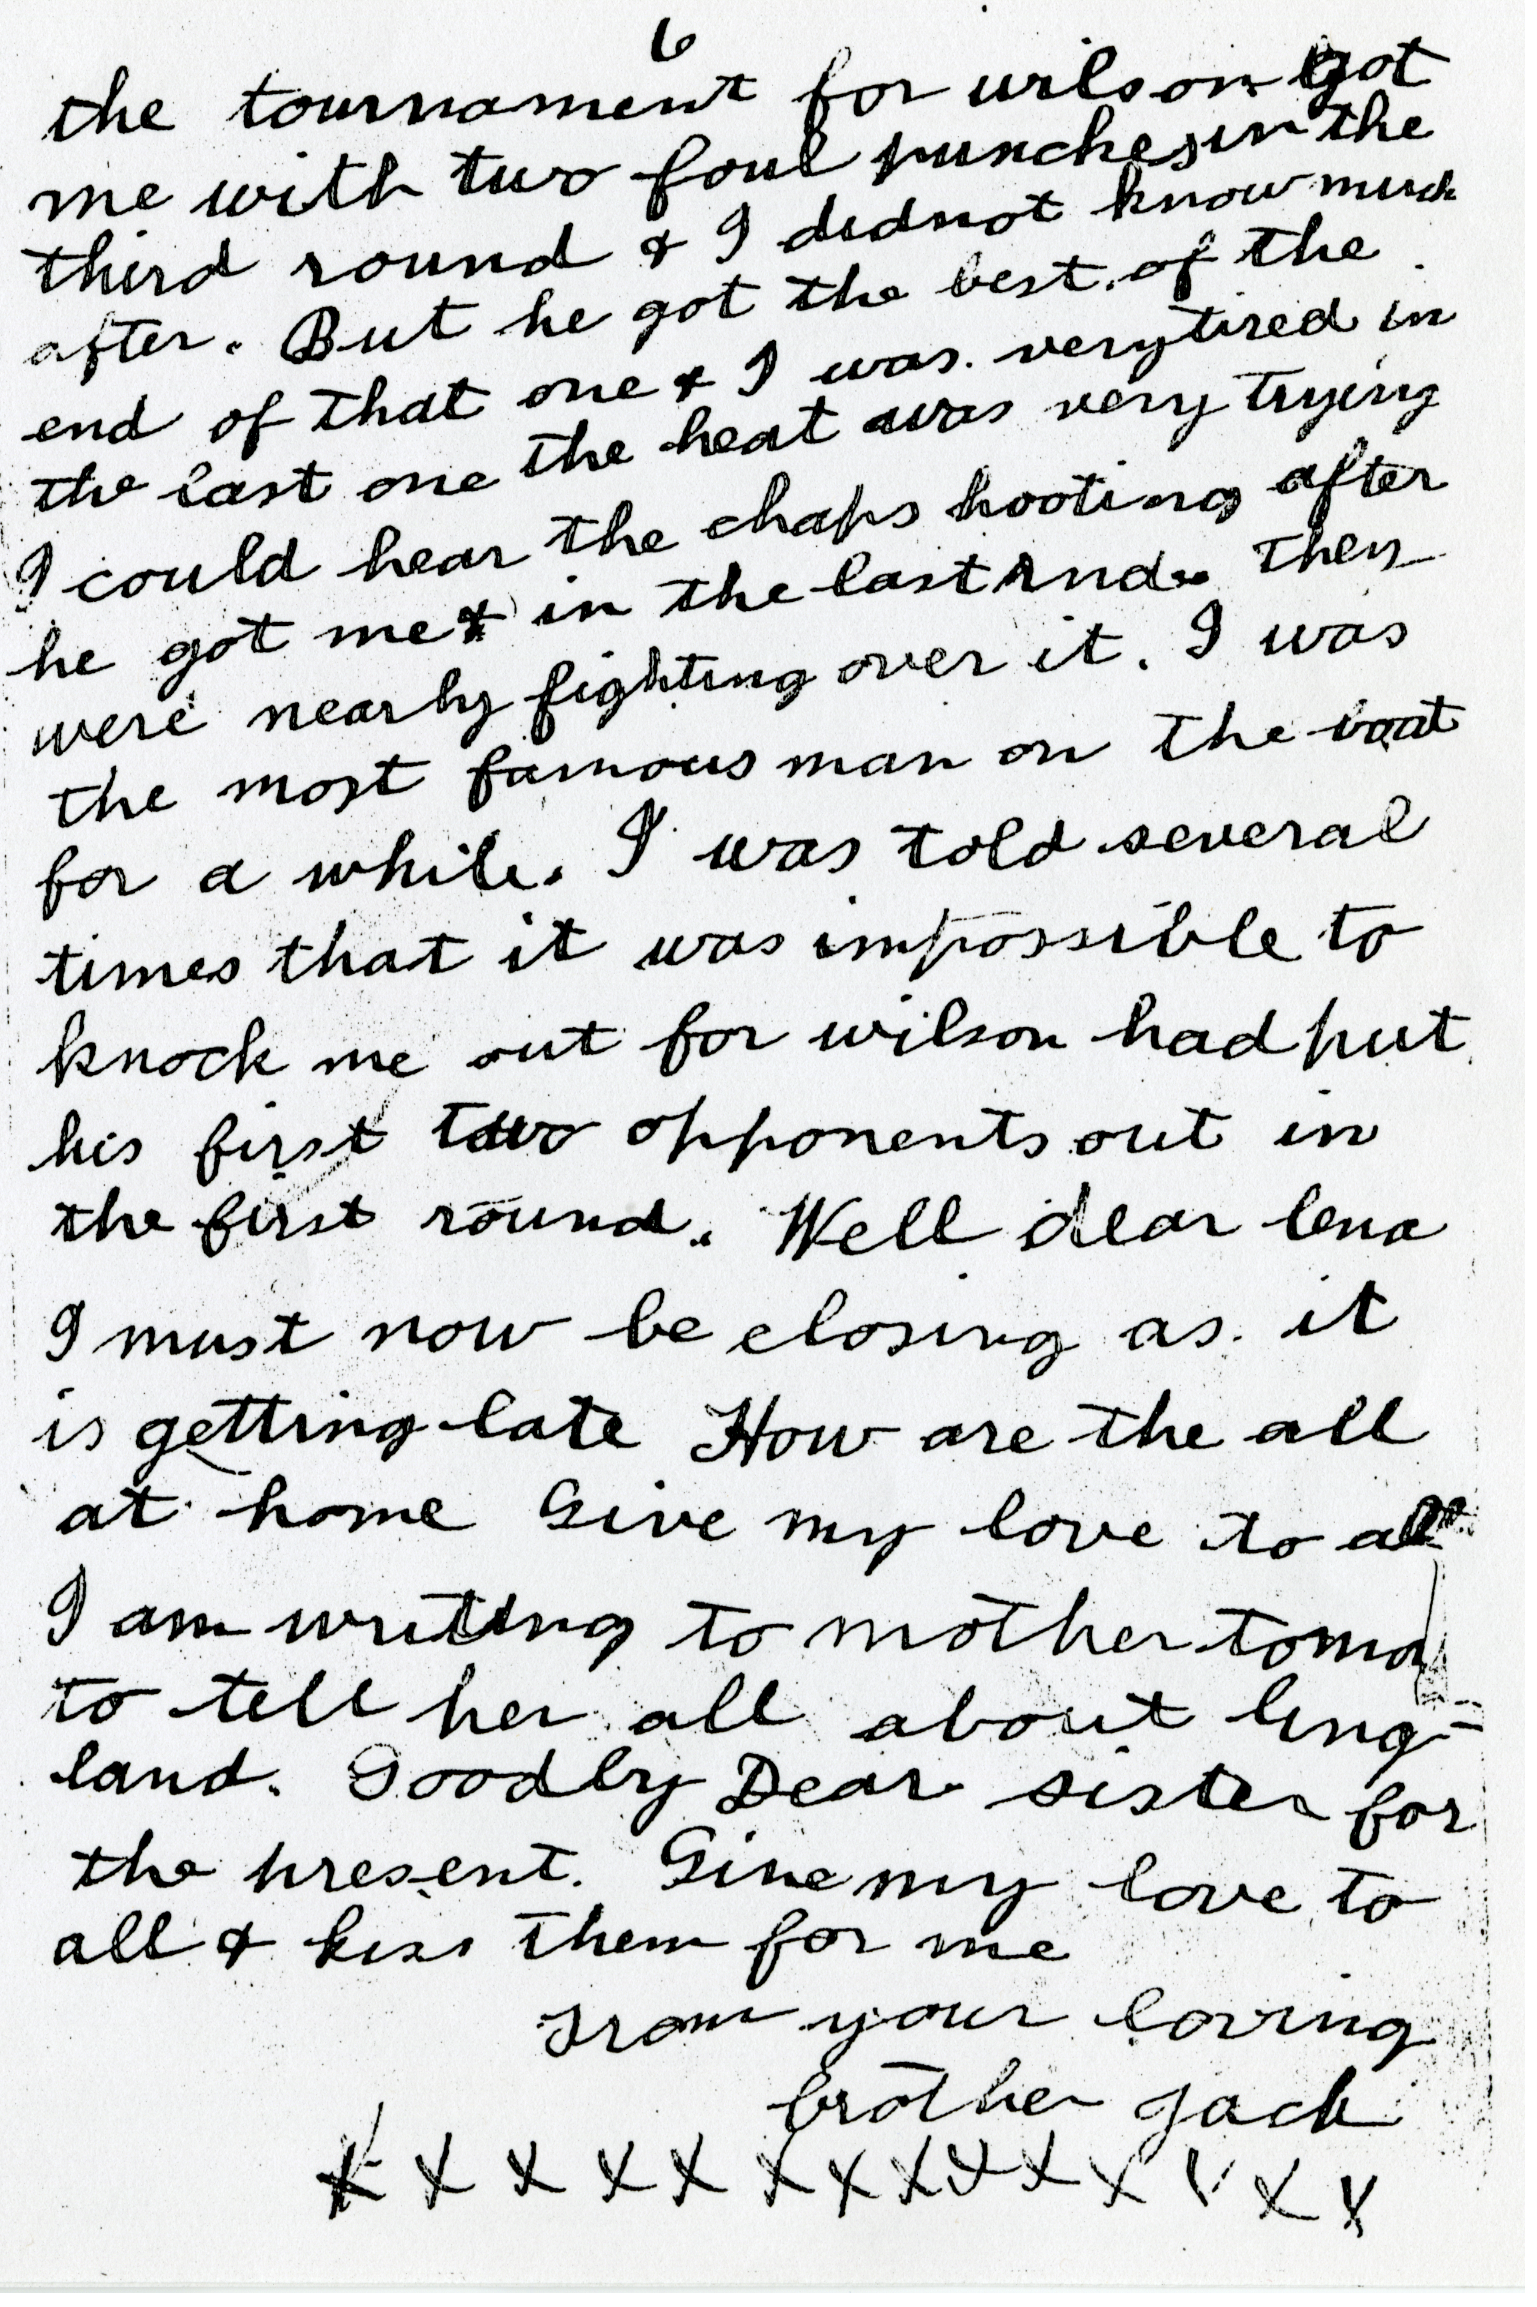 6
the tournament for wilson got
me with two foul punches in the
third round & I did not know much
after. But he got the best of the
end of that one & I was very tired in
the last one the heat was very trying
I could hear the chaps hooting after
he got me & in the last rnd. They
were nearly fighting over it. I was
the most famous man on the boat
for a while. I was told several
times that it was impossible to
knock me out for wilson had put
his first two opponents out in
the first round. Well dear lena
I must now be closing as it
is getting late How are the all
at home Give my love to all
I am writing to mother tomo
to tell her all about Eng-
land. Goodby Dear sister for
the present. Give my love to
all & kiss them for me
From your loving
brother Jack
X X X X X X X X X X X X X X